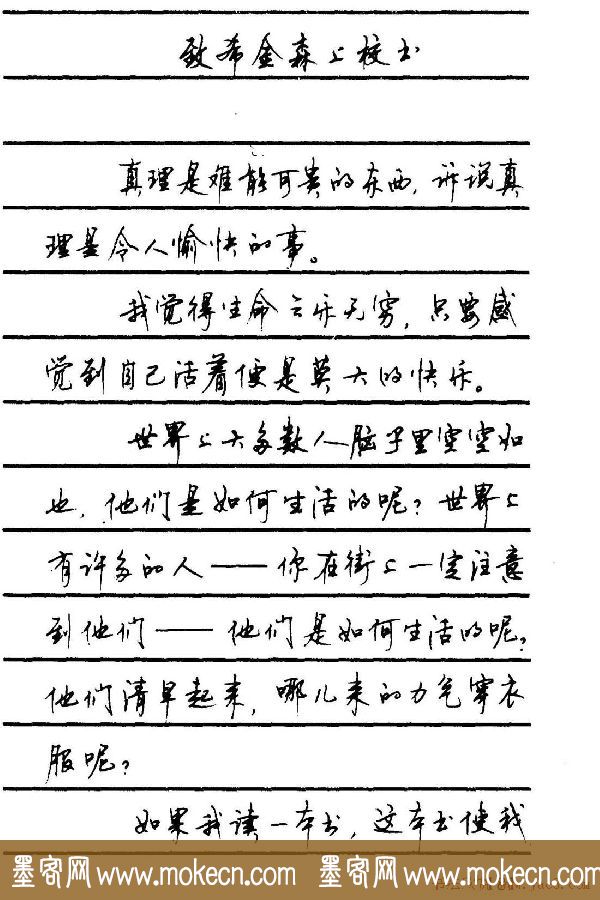 致希金森上校书
真理是难能可贵的东西,诉说真
理是令人愉快的事。
我觉得生命云乐无穷,只要感
觉到自己活着便是莫大的快乐。
世界上大多数人脑子里空空如
也,他们是如何生活的呢?世界上
有许多的人——你在街上一定注意
到他们——他们是如何生活的呢?
他们清早起来,哪儿来的力气穿衣
服呢?
如果我读一本书,这本书使我
墨客网 www.mokecn.com 墨客网 www.mokecn.com